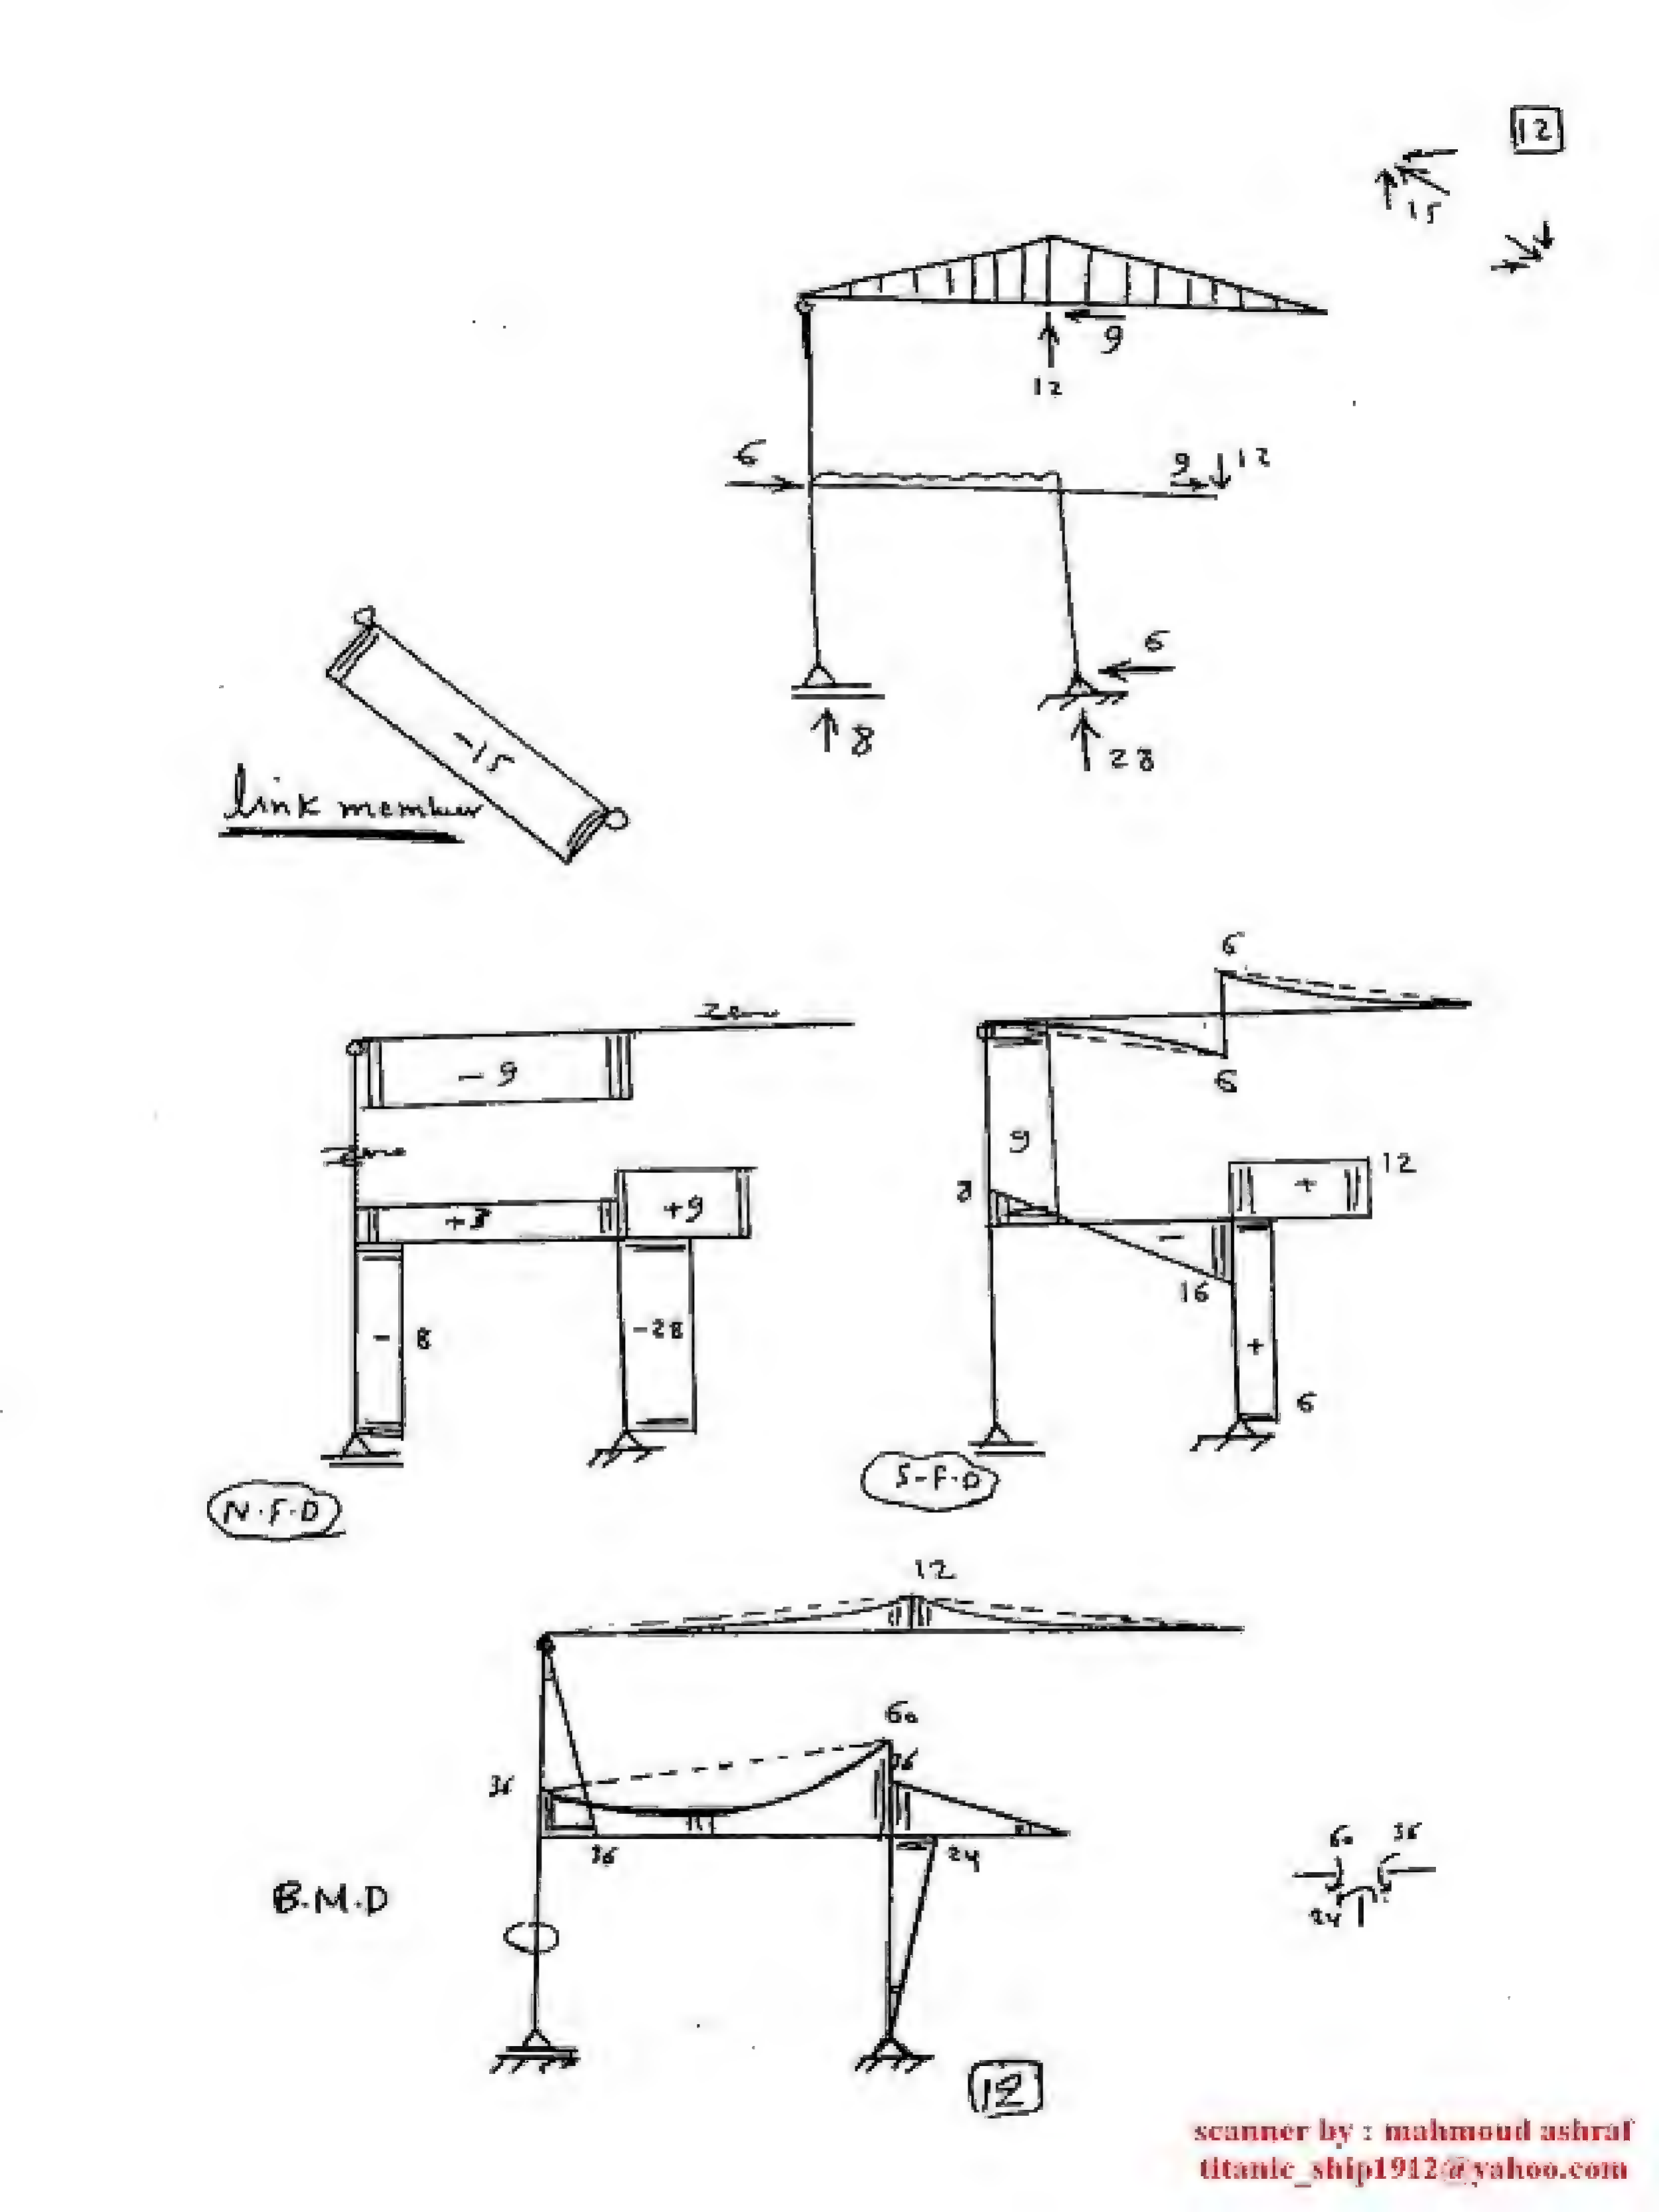 12
15
9
12
6
9 12
6
8
28
-15
link member
6
Zero
- 9
6
9
Zero
8
12
+
+3
+9
-
16
- 8
-28
+
6
S.F.D
N.F.D
12
60
36
36
60 36
36
24
24
B.M.D
12
scanner by : mahmoud ashraf
titanic_ship1912@yahoo.com